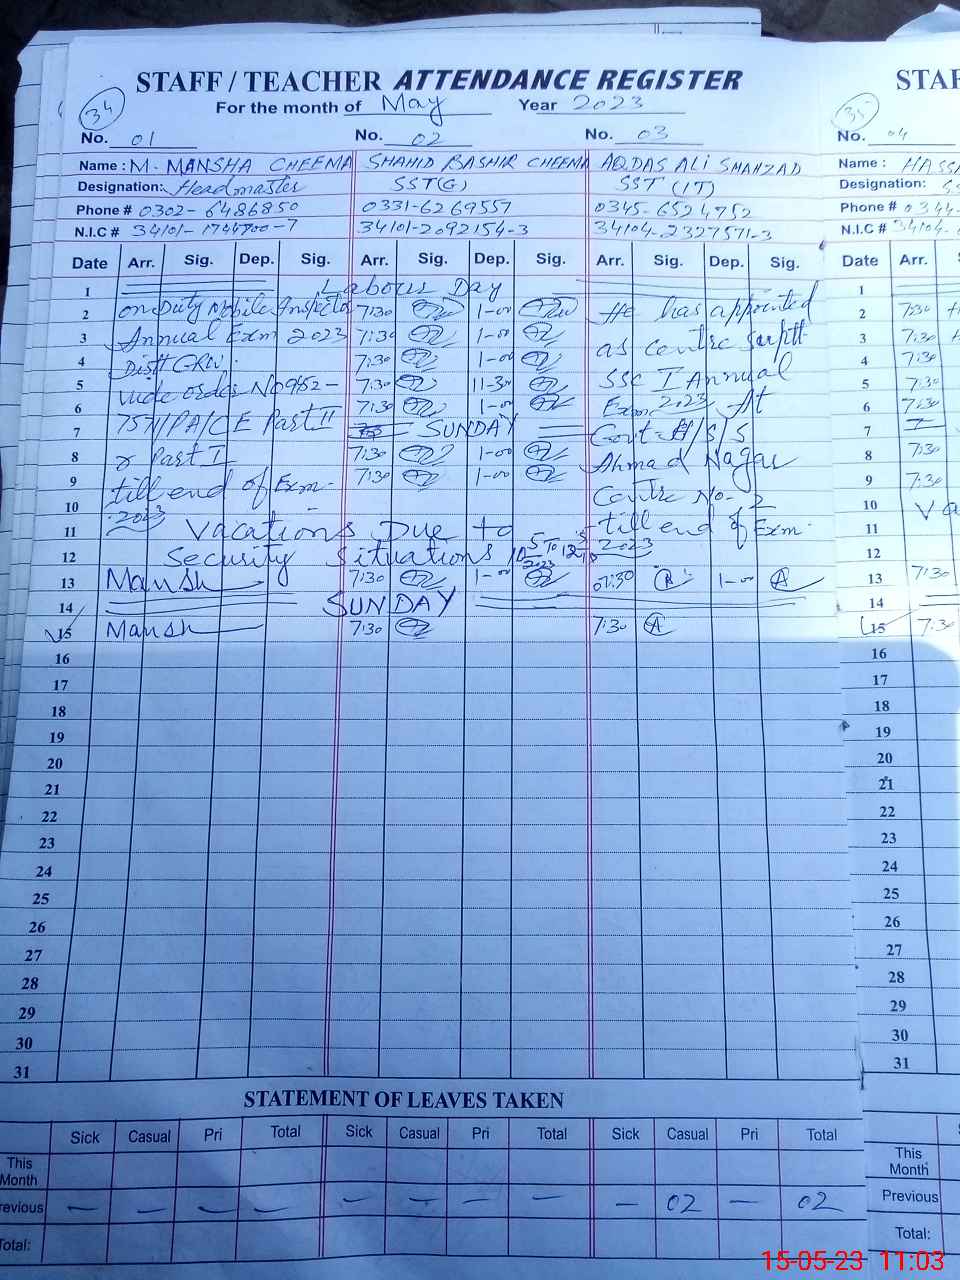 STAFF / TEACHER ATTENDANCE REGISTER
For the month of May Year 2023
34
No. 01 No. 02 No. 03
Name : M. MANSHA CHEEMA SHAHID BASHIR CHEEMA AQDAS ALI SHAHZAD
Designation: Headmaster SST(G) SST (IT)
Phone # 0302-6486850 0331-6269557 0345-6524752
N.I.C # 34101-1744700-7 34101-2092154-3 34104-2327571-3
Date Arr. Sig. Dep. Sig. Arr. Sig. Dep. Sig. Arr. Sig. Dep. Sig.
1 Labour Day
2 on Duty Mobile Inspector 7:30 1-00 He has appointed
3 Annual Exm 2023 7:30 1-00 as centre
4 Distt GRW. 7:30 1-00 SSC I Annual
5 vide order No 952- 7:30 11-30 Exm 2023 At
6 7571/PA/CE Part II 7:30 1-00 Govt. H/S/S
7 SUNDAY
8 & Part I 7:30 1-00 Ahmad Nagar
9 till end of Exm. 7:30 1-00 Centre No- 2
10 2023
11 Vacations Due to till end of Exm.
12 Security Situations 2023
13 Mansh 7:30 1-00 07:30 1-00
14 SUNDAY
15 Mansh 7:30 7:30
16
17
18
19
20
21
22
23
24
25
26
27
28
29
30
31
STATEMENT OF LEAVES TAKEN
Sick Casual Pri Total Sick Casual Pri Total Sick Casual Pri Total
This Month
revious — — — — — — — — — 02 — 02
Total:
STAF
35
No. 04
Name : HASS
Designation:
Phone # 0344-
N.I.C # 34104-
Date Arr.
1
2 7:30
3 7:30
4 7:30
5 7:30
6 7:30
7
8 7:30
9 7:30
10 Va
11
12
13 7:30
14
15 7:30
16
17
18
19
20
21
22
23
24
25
26
27
28
29
30
31
This Month
Previous
Total:
15-05-23 11:03